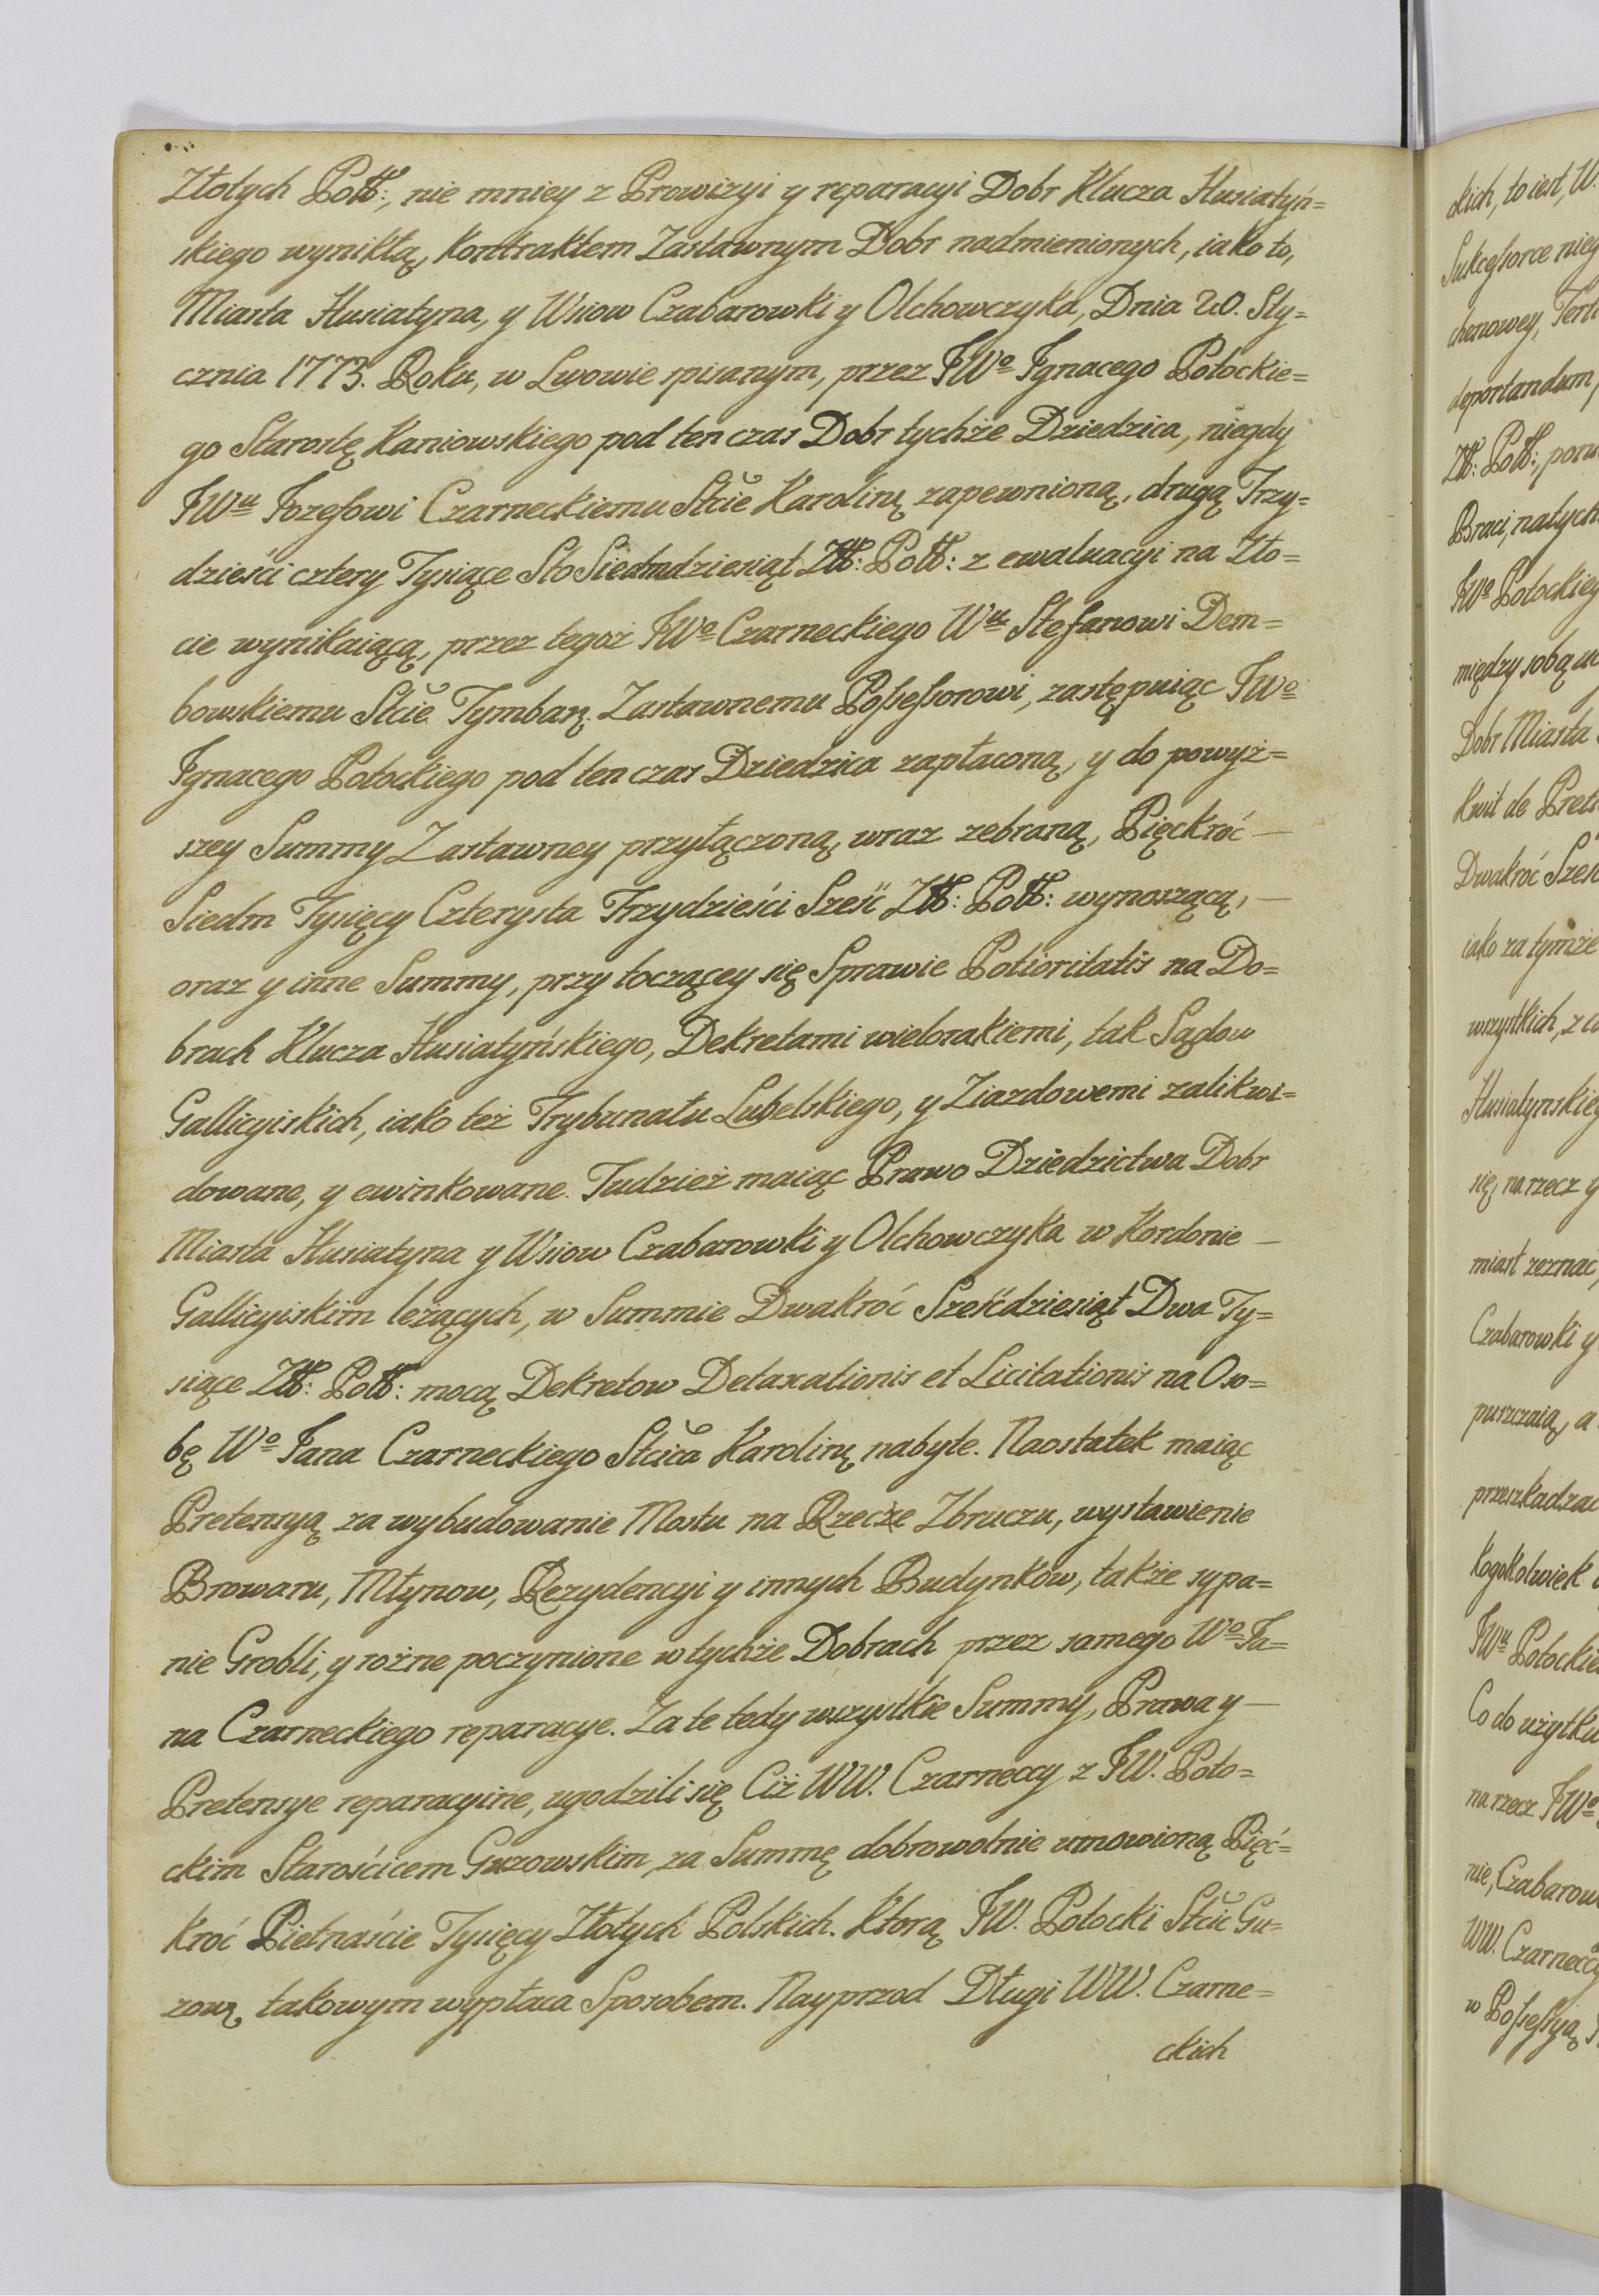 Złotych Poltt:, nie mniey z Prowizyi y reparacyi Dobr Klucza Husiatyń=
skiego wynikłą, kontraktem Zastawnym Dobr nadmienionych, iako to,
Miasta Husiatyna, y Wsiow Czabarowki y Olchowczyka, Dnia 20. Sty=
cznia 1773. Roku, w Lwowie spisanym, przez JWo Ignacego Potockie=
go Starostę Kaniowskiego pod ten czas Dobr tychże Dziedzica, niegdy
JWu Jozefowi Czarneckiemu Stcie Karolinę zapewnioną, drugą Trzy=
dzieści cztery Tysiące Sto Siedmdziesiąt Ztt: Poltt: z ewaluacyi na Zło=
cie wynikaiącą, przez tegoż JWo Czarneckiego Wu Stefanowi Dem=
bowskiemu Stcie Tymbarą. Zastawnemu Possessorowi, zastępuiąc JWo
Ignacego Potockiego pod ten czas Dziedzica zapłaconą, y do powyż=
szey Summy Zastawney przyłączoną, wraz zebraną, Pięckroć —
Siedm Tysięcy Czterysta Trzydzieści Sześć Ztt: Poltt: wynoszącą, —
oraz y inne Summy, przy toczącey się Sprawie Potioritatis na Do=
brach Klucza Husiatyńskiego, Dekretami wielorakiemi, tak Sądow
Gallicyiskich, iako też Trybunału Lubelskiego, y Ziazdowemi zalikwi=
dowane, y ewinkowane. Tudzież maiąc Prawo Dziedzictwa Dobr
Miasta Husiatyna y Wsiow Czabarowki y Olchowczyka w Kordonie —
Gallicyiskim leżących, w Summie Dwakroć Sześćdziesiąt Dwa Ty=
siące Ztt: Poltt: mocą Dekretow Detaxationis et Licitationis na Oso=
bę Wo Jana Czarneckiego Stcica Karolinę nabyte. Naostatek maiąc
Pretensyą za wybudowanie Mostu na Rzecze Zbruczu, wystawienie
Browaru, Młynow, Rezydencyi y innych Budynków, także sypa=
nie Grobli, y rożne poczynione w tychże Dobrach przez samego Wo Ja=
na Czarneckiego reparacye. Za te tedy wszystkie Summy, Prawa y —
Pretensye reparacyine, ugodzili się Ciż WW. Czarneccy z JW. Poto=
ckim Starościcem Guzowskim, za Summę dobrowolnie umowioną Pięć=
kroć Pietnaście Tysięcy Złotych Polskich. Ktorą JW. Potocki Stcic Gu=
zową takowym wypłaca Sposobem. Nayprzod Długi WW. Czarne=
ckich
ckich, to iest, W.
Sukcessorce nieg
chenowey,
deportandum,
Ztt: Poltt:,
Braci, natych
JWo Potockieg
między sobą
Dobr Miasta
Kwit de Pret
Dwakroć Sześć
iako za tymże
wszystkich, z
Husiatynskieg
się, na rzecz y
miast zeznać,
Czabarowki y
puszczaią, a
przeszkadzać
kogokolwiek
JWu Potockie
Co do użytku
na rzecz JWo
nie, Czabarow
WW. Czarneccy
w Possessyą